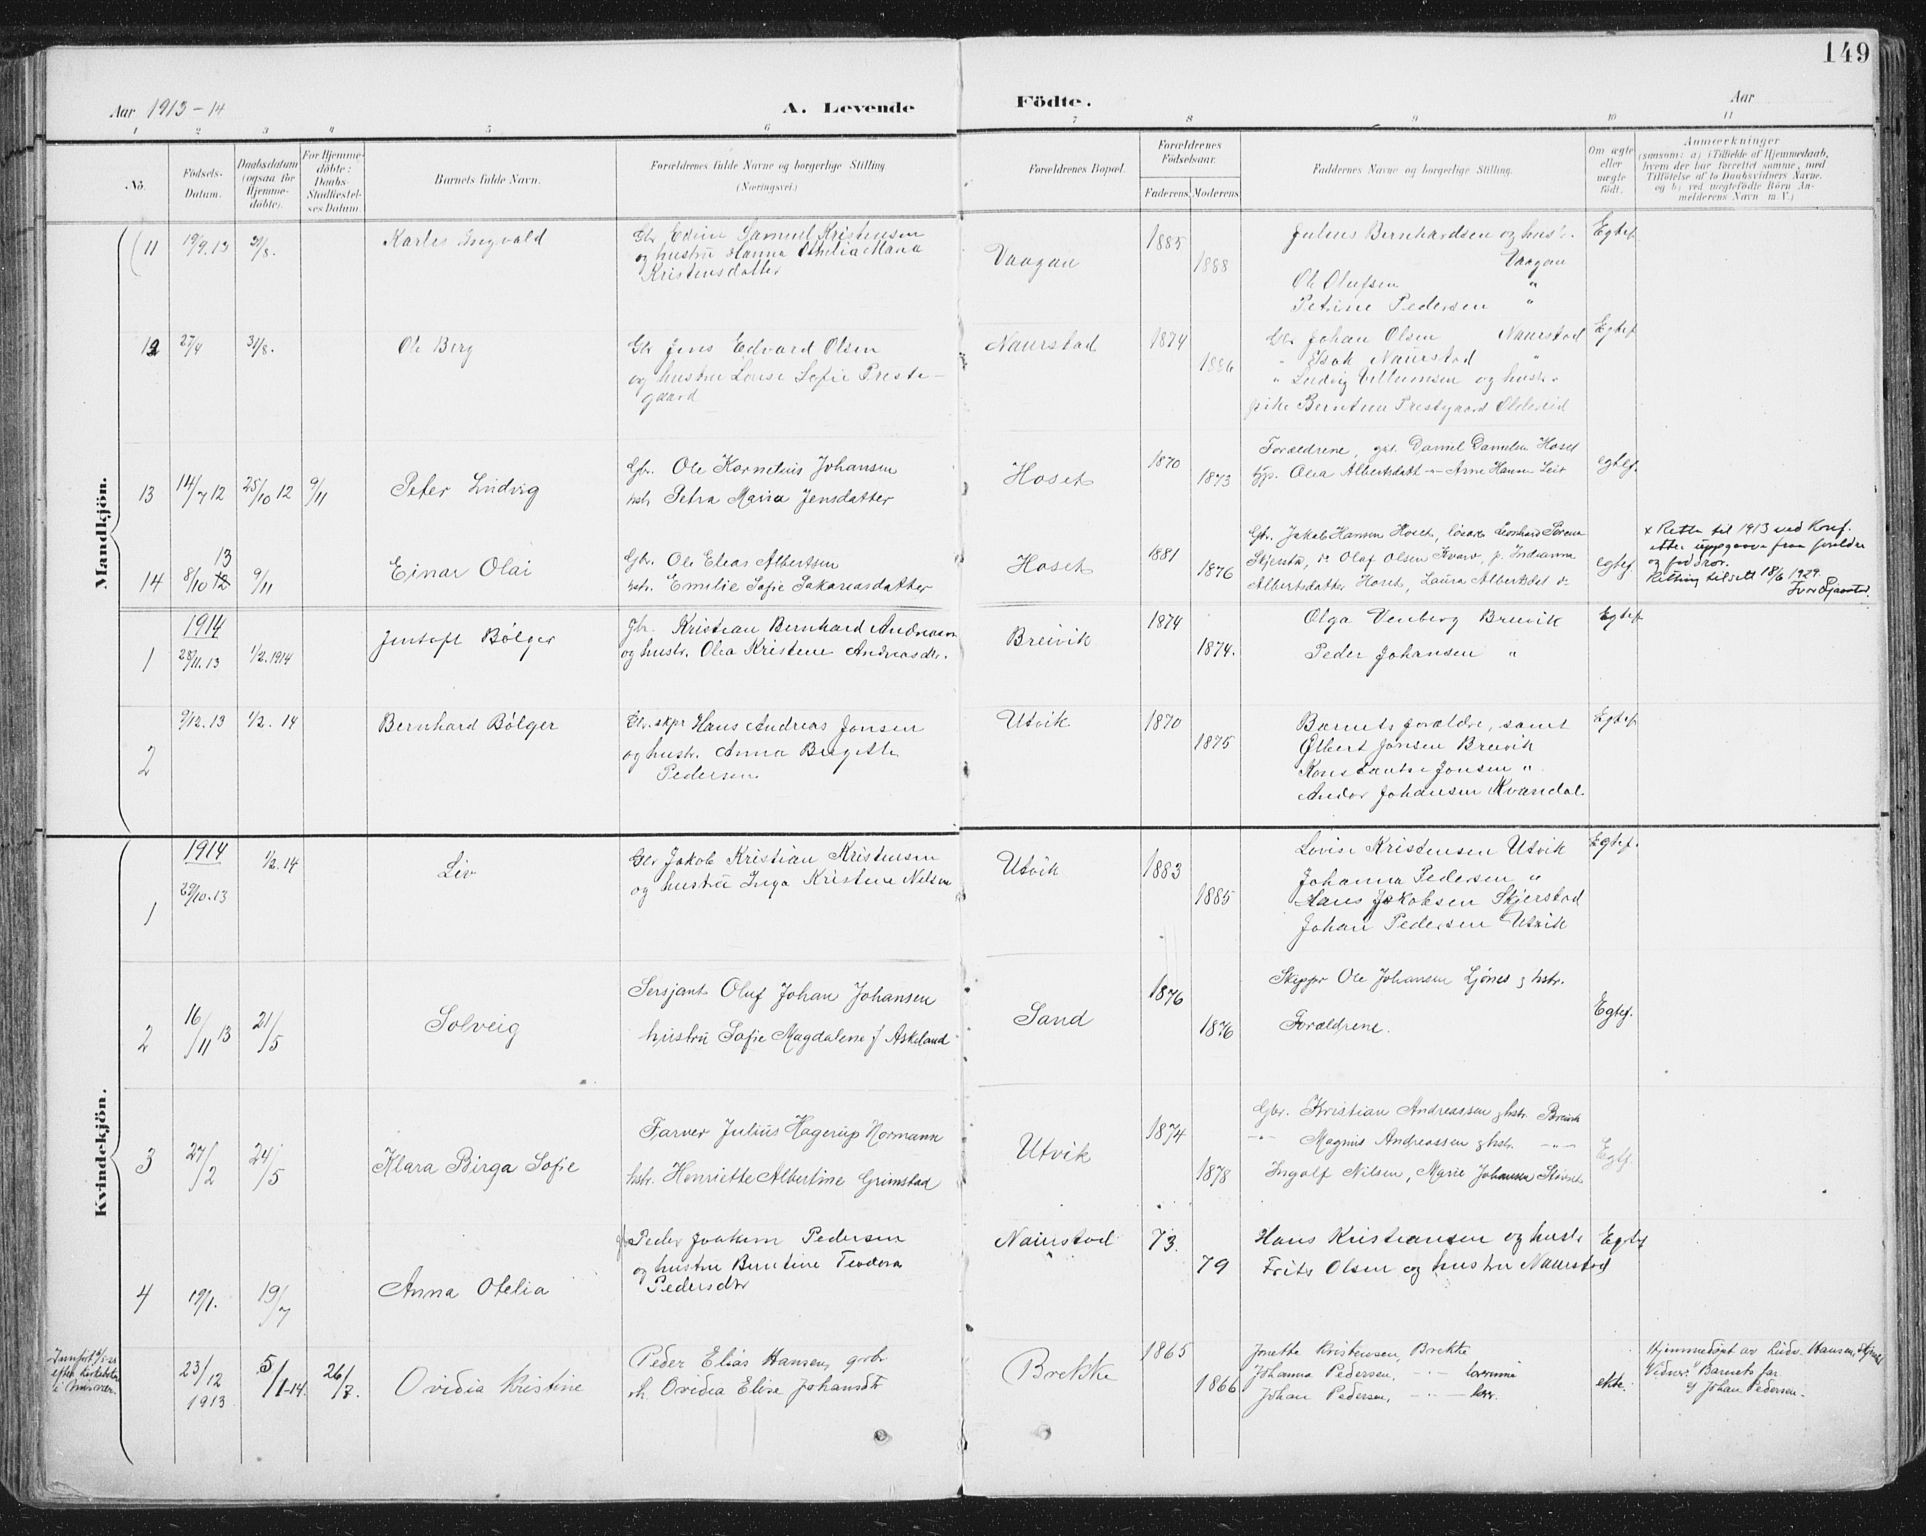 149
Aar 1913-14
A. Levende
Födte.
Aar
1 2 3 4 5 6 7 8 9 10 11
No.
Födsels-Datum.
Daabsdatum (ogsaa for Hjemme-döbte).
For Hjemme-döbte: Daabs-Stadfæstel-ses Datum.
Barnets fulde Navn.
Forældrenes fulde Navne og borgerlige Stilling.
(Næringsvei.)
Forældrenes Bopæl.
Forældrenes Födselsaar.
Faderens. Moderens.
Faddernes Navne og borgerlige Stilling.
Om ægte eller uægte födt.
Anmærkninger
(saasom: a) i Tilfælde af Hjemmedaab,
hvem der har forrettet samme, med
Tilföielse af to Daabsvidners Navne.
og b) ved uægtefödte Börn An-
melderens Navn m. V.)
Mandkjön.
11 19/9.13 31/8. Karles Ingvald
Gbr Edvin Samuel Kristensen
og hustru Hanna Othelia Maria
Kristensdatter
Vaagan 1885 1888
Julius Bernhardsen og hust.
Vaagan
Ole Olufsen "
Petrine Pedersen "
Egtef.
12 27/4 31/8. Ole Berg
Gbr Jens Edvard Olsen
og hustru Louise Sofie Preste-
gaard
Naurstad 1874 1886
Gbr Johan Olsen Naurstad
" Isak Naurstad "
" Ludvig Villumsen og hustr.
pike Berntine Prestgaard
Egtef
13 14/7 12 25/10 12 9/11 Peter Ludvig
Gbr. Ole Kornelius Johansen
hstr Petra Maria Jensdatter
Hoset 1870 1873
Forældrene, gst. Daniel Danielsen Hoset
Olea Albertsdatt - Arne Hansen
egtef.
14 8/10 12 13 9/11 Einar Olai
Gbr. Ole Elias Albertsen
hstr. Emelie Sofie Sakariasdatter
Hoset 1881 1876
Gbr. Jakob Hansen Hoset, Leonhard
Skjerstad, Olaf Olsen Kvarv, p. Indianna
Albertsdatter Hoset, Laura Albertsdat
egtef
x Rettet til 1913 ved Konf.
etter uppgave fra foreldre
og
Retting tilsett 18/6 1929.
1 1914 28/11.13 1/2.1914 Jentoft Bølger
Gbr. Kristian Bernhard Andreassen
og hustr. Olea Kristine Andreasdtr.
Breivik 1874 1874.
Olga Venberg Breivik
Peder Johansen "
Egtef
2 9/12.13 1/2.14 Bernhard Bølger
Gbr. skpr Hans Andreas Jonsen
og hustr. Anna Birgitte
Pedersen
Utvik 1870 1875
Barnets forældre, samt
Albert Jonsen Breivik
Konstantse Jonsen "
Andor Johansen Kvandal
Egtef
Kvindekjön.
1 1914 29/10.13 1/2.14 Liv
Gbr Jakob Kristian Kristensen
og hustru Inga Kristine Nilsen
Utvik 1883 1885
Lovise Kristensen Utvik
Johanna Pedersen "
Hans Jakobsen Skjerstad
Johan Pedersen Utvik
Egtef.
2 16/11 13 21/5 Solveig
Sersjant Oluf Johan Johansen
hustru Sofie Magdalene f Askeland
Sand 1876 1876
Skippr Ole Johansen Ljønes og hstr.
Forældrene.
Egtef.
3 27/2 24/5 Klara Birga Sofie
Farver Julius Hagerup Normann
hstr. Henriette Albertine Grimstad
Utvik 1874 1878
Gbr. Kristian Andreassen og hstr. Breivik
-"- Magnus Andreassen og hstr. -"-
Ingolf Nilsen, Marie Johansen
Egtf.
4 19/1. 19/7 Anna Otelia
gbr Peder Joakim Pedersen
og hustru Berntine Teodora
Pedersdtr
Naurstad 73. 79
Hans Kristiansen og hustr
Frits Olsen og hustru Naurstad
Egtef
Innført
efter
i
23/12 1913 5/1-14 26/7. Ovidia Kristine
Peder Elias Hansen, grbr.
h. Ovidia Elise Johansdtr
Brekke 1865 1866
Jonette Kristensen, Brekke
Johanna Pedersen, -"-
Johan Pedersen, -"-
ekte.
Hjemmedøpt av Ludv. Hansen,
Vidner: Barnets far
og Johan Pedersen.